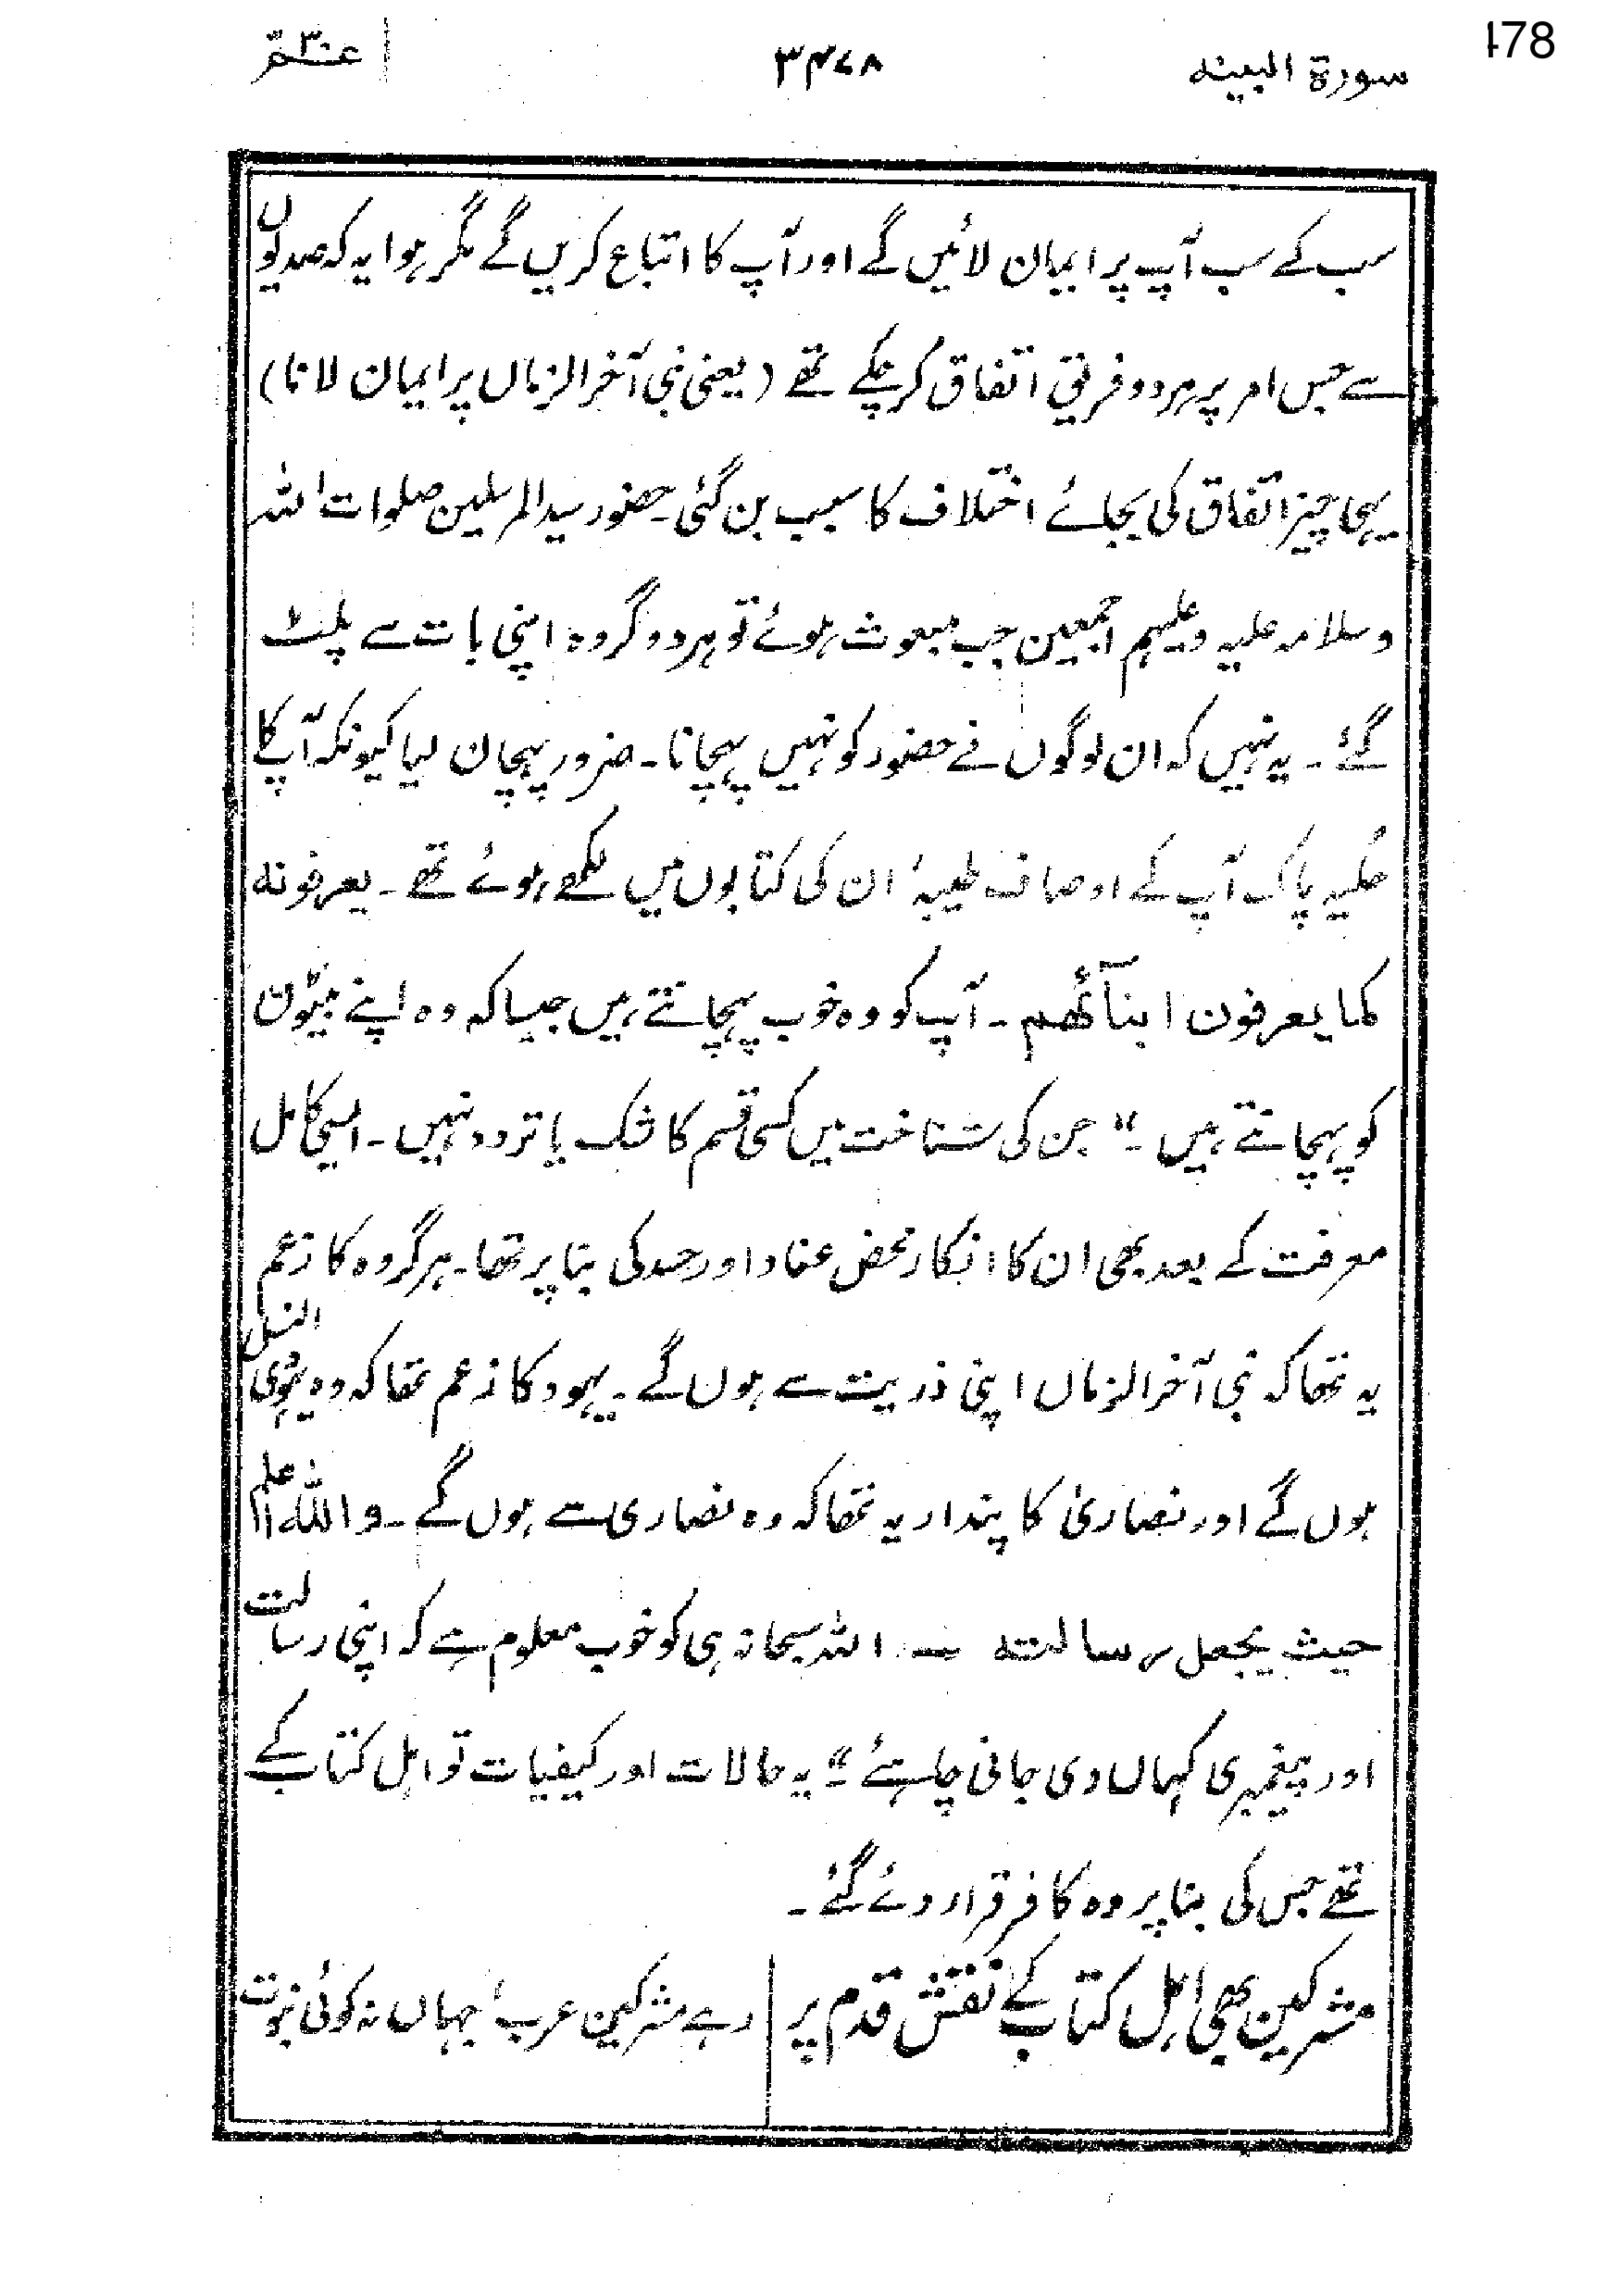 478
سورۃ البینہ ۳۴۷۸ عمّ ۳۰
سب کے سب آپ پر ایمان لائیں گے اور آپ کا اتباع کریں گے مگر ہوا یہ کہ صدیوں
سے جس امر پر ہر دو فریق اتفاق کر چکے تھے (یعنی نبی آخر الزماں پر ایمان لانا)
یہی چیز اتفاق کی بجائے اختلاف کا سبب بن گئی۔ حضور سید المرسلین صلوات اللہ
وسلامہ علیہ وعلیہم اجمعین جب مبعوث ہوئے تو ہر دو گروہ اپنی بات سے پلٹ
گئے۔ یہ نہیں کہ ان لوگوں نے حضور کو نہیں پہچانا۔ ضرور پہچان لیا کیونکہ آپ کا
حلیہ پاک آپ کے اوصاف طیبہ ان کی کتابوں میں لکھے ہوئے تھے۔ یعرفونہ
کما یعرفون ابنآئھم۔ آپ کو وہ خوب پہچانتے ہیں جیسا کہ وہ اپنے بیٹوں
کو پہچانتے ہیں۔" جن کی شناخت میں کسی قسم کا شک یا تردد نہیں۔ ایسی کامل
معرفت کے بعد بھی ان کا انکار محض عناد اور حسد کی بنا پر تھا۔ ہر گروہ کا زعم
یہ تھا کہ نبی آخر الزماں اپنی ذریت سے ہوں گے۔ یہود کا زعم تھا کہ وہ یہودی النسل
ہوں گے اور نصاریٰ کا پندار یہ تھا کہ وہ نصاری سے ہوں گے۔ واللہ اعلم
حیث یجعل رسالتہ ۔ اللہ سبحانہ ہی کو خوب معلوم ہے کہ اپنی رسالت
اور پیغمبری کہاں دی جانی چاہئے"۔ یہ حالات اور کیفیات تو اہل کتاب کے
تھے جس کی بنا پر وہ کافر قرار دئے گئے۔
مشرکین بھی اہل کتاب کے نقش قدم پر | رہے مشرکین عرب، جہاں نہ کوئی نبوت